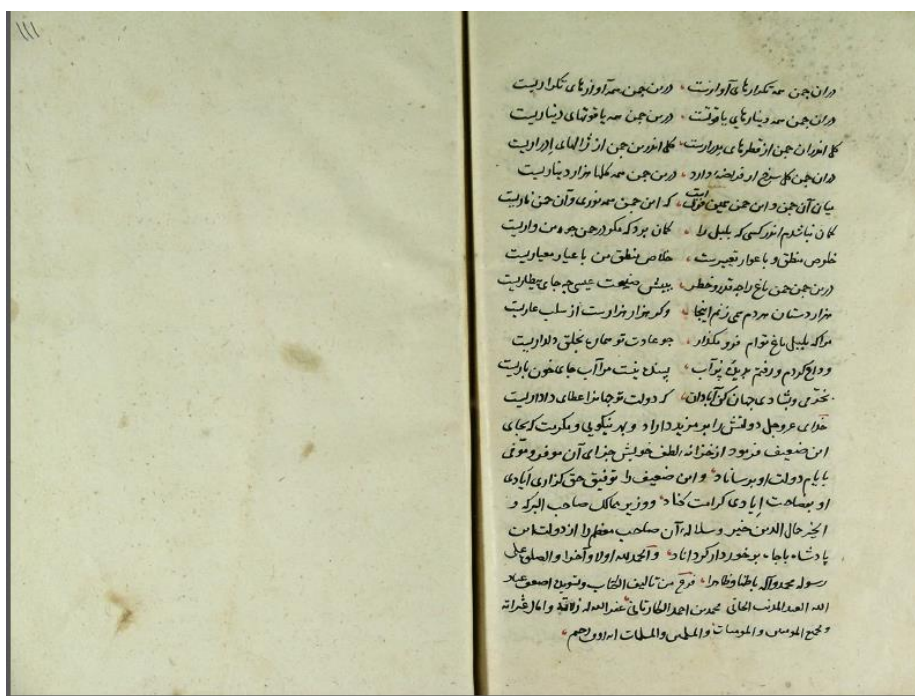 در آن چمن همه تکرارهای آوازست درین چمن همه آوازهای تکراریست
در آن چمن همه دینارهای یاقوتست درین چمن همه یاقوتهای دیناریست
کل اندران چمن از قطرهای کل اندرین چمن از ژالهای ادراریست
در آن چمن کل سرخ ار قریضه دارد درین چمن همه کلها هزار دیناریست
میان آن چمن و این چمن همین فرق است که این چمن همه نوری و آن چمن ناریست
کمان نباشدم اندر کسی که بلبل را کمان برد که مکر در چمن چو من واریست
خلوص منطق و با عوار تعبیرست خلاص منطق من با عیار معیاریست
درین چمن چمن باغ را چه قدر و خطر به پیش عیسی چه جای بیطاریست
هزار دستان هر دم همی زنم اینجا وکر هزار هزارست از سلب عاریست
مرا که بلبل باغ توام فرو مکذار چو عادت تو بخلق دلداریست
وداع کردم و رفتم بدیده پر آب نیست مرا آب جای خون باریست
بخرمی و بشادی جهان کن آبادان که دولت تو جهانرا عطای داداریست
خدای عزوجل دولتش را بر مزید داراد و بهر نیکویی و مکرمت که بجای
این ضعیف فرمود از خزانه لطف خویش جزای آن موفر و موفی
بایام دولت او برساناد و این ضعیف را توفیق حق کزاری ایادی
او ایادی کرامت کناد و وزیر ممالک صاحب البرکه و
الخیر جمال الدین خیر وسلاله آن صاحب معظم را از دولت این
پادشاه با جاه برخوردار کرداناد والحمد لله اولا وآخرا والصلوة علی
رسوله محمد وآله باطنا وظاهرا فرغ من تالیف الکتاب وتسویده اضعف عباد
الله العبد المذنب الجانی محمد بن احمد غفر الله له زلاته واقال عثراته
ولجمیع المومنین والمومنات والمسلمین والمسلمات انه ارحم